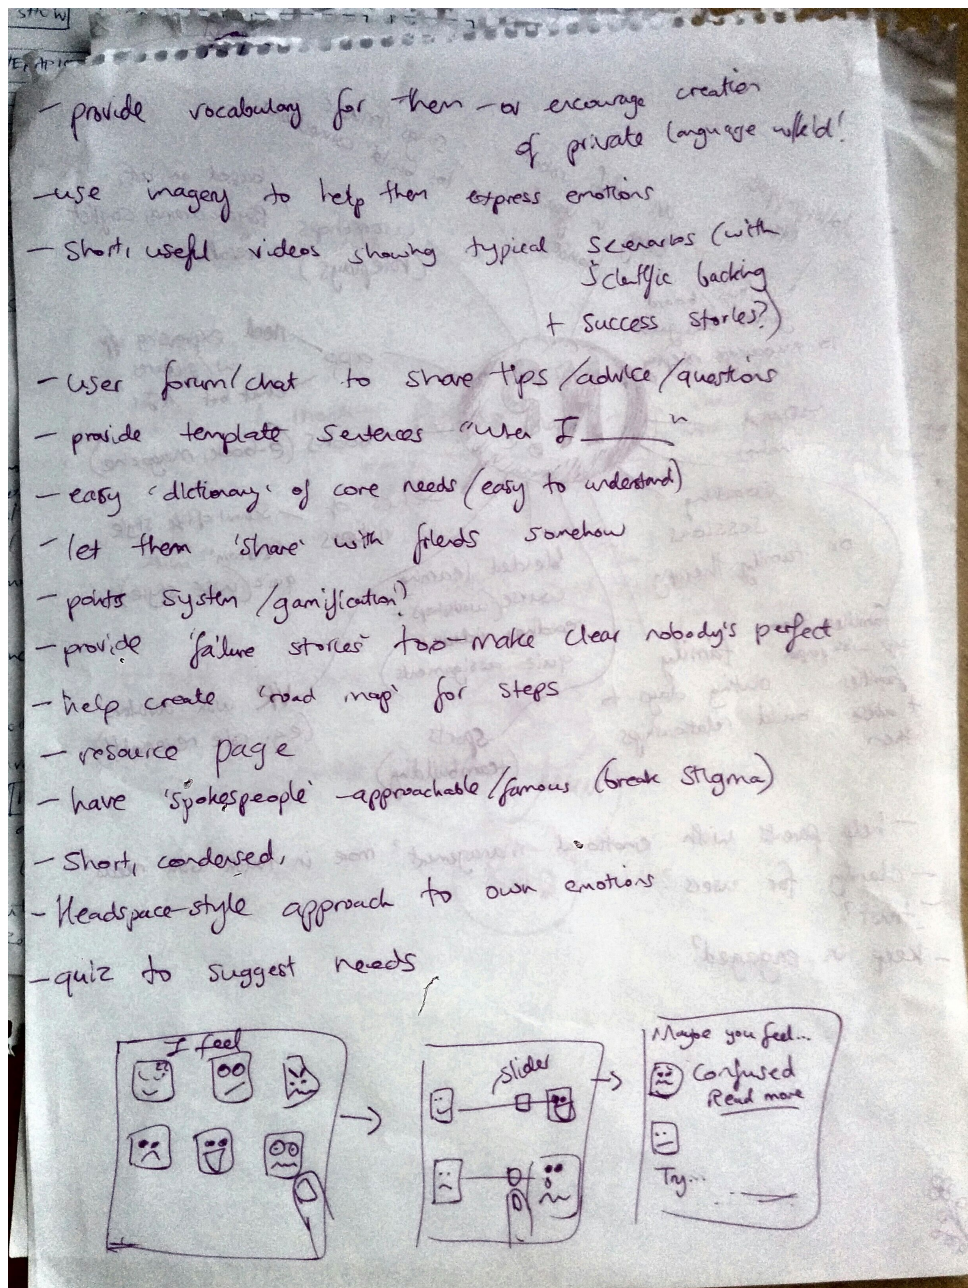 - provide vocabulary for them - or encourage creation
of private language w/kid!
- use imagery to help them express emotions
- Short, useful videos showing typical scenarios (with
scientific backing
+ success stories?)
- user forum/chat to share tips/advice/questions
- provide template sentences "when I ______"
- easy 'dictionary' of core needs/(easy to understand)
- let them 'share' with friends somehow
- points system/gamification?
- provide 'failure stories' too - make clear nobody's perfect
- help create 'road map' for steps
- resource page
- have 'spokespeople' - approachable/famous (break stigma)
- Short, condensed,
- Headspace-style approach to own emotions
- quiz to suggest needs
I feel
slider
Maybe you feel...
Confused
Read more
Try...